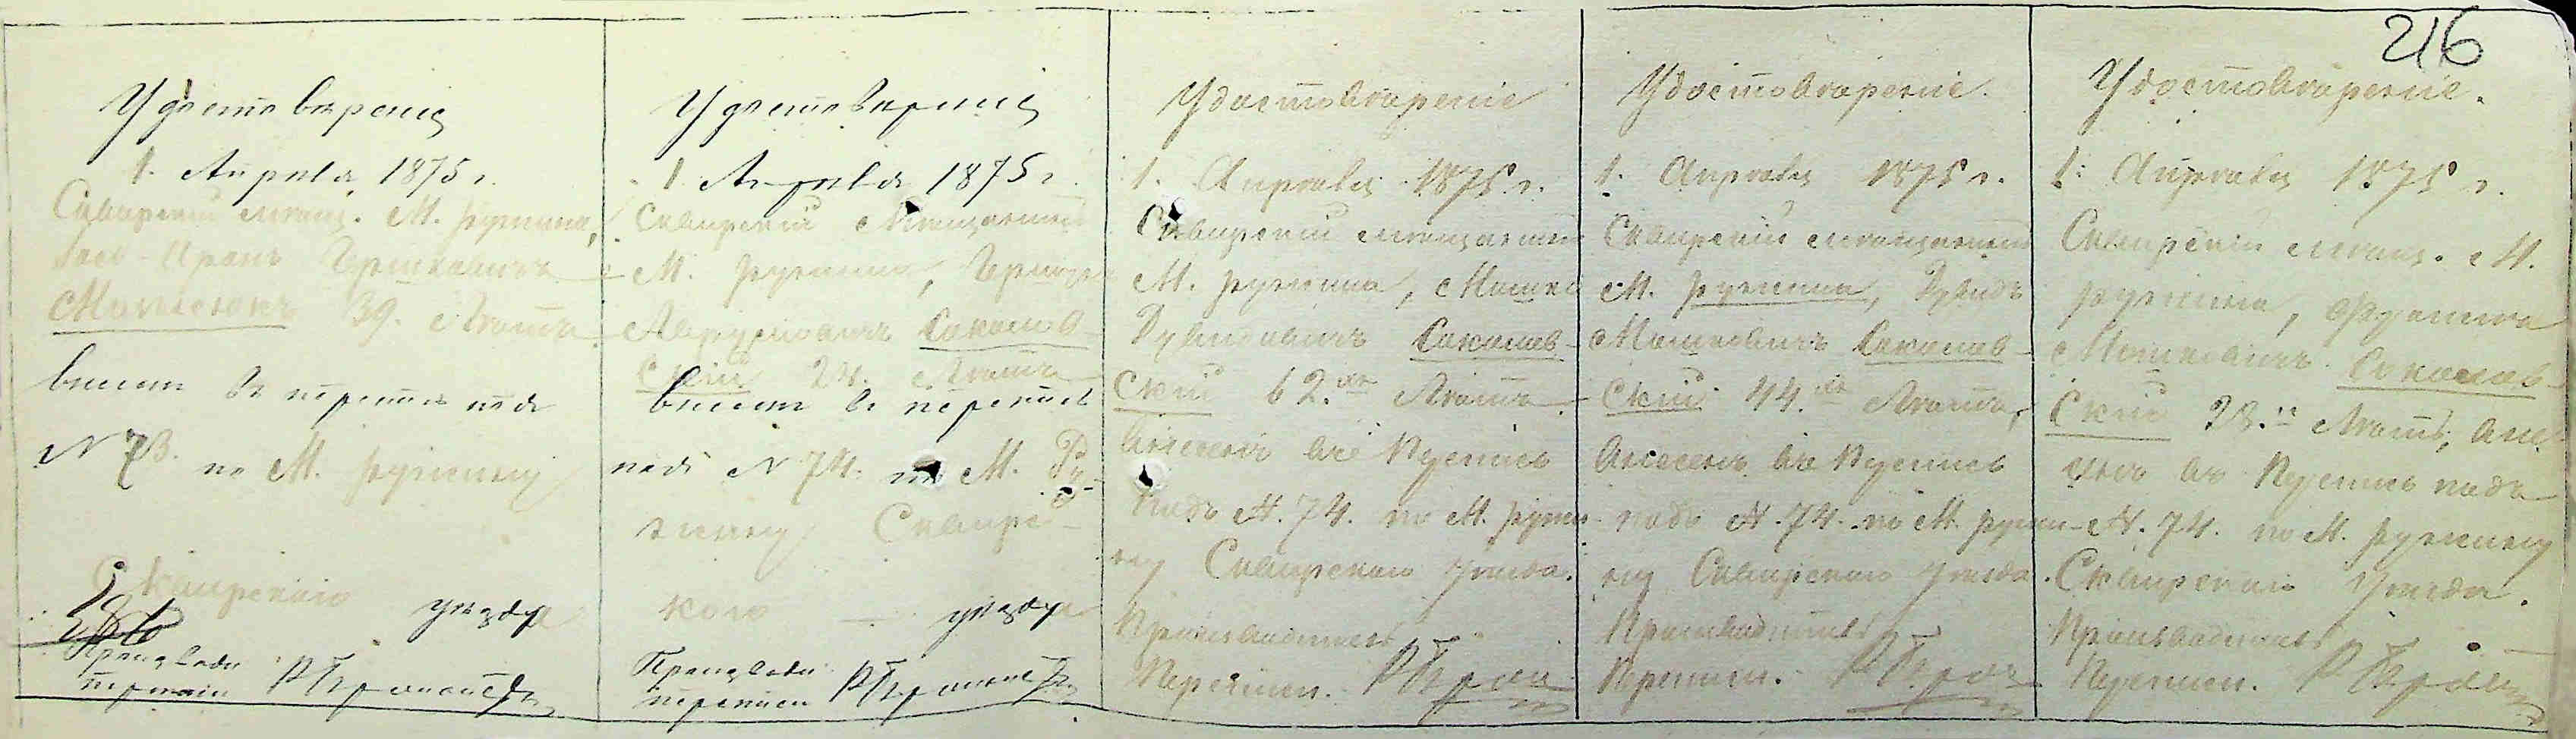 216
Удостовѣреніе
1. Апрѣля 1875 г.
Сквирскій мѣщ. М. Ружина,
Гершковичъ
39. лѣтъ
внесенъ въ перепись подъ
N 73. по М. Ружину
Сквирскаго уѣзда
Производи
переписи
Удостовѣреніе
1 Апрѣля 1875 г.
Сквирскій мѣщанинъ
М. Ружина,
Соколов-
скій 24. лѣтъ
внесенъ въ перепись
подъ N 74. по М. Ру-
жину Сквирс-
каго уѣзда
Производи
переписи
Удостовѣреніе
1. Апрѣля 1875 г.
Сквирскій мѣщанинъ
М. Ружина, Мошко
Дувидовичъ Соколов-
скій 62.хъ лѣтъ
внесенъ въ Перепись
подъ N. 74. по М. Ружи-
ну Сквирскаго уѣзда.
Производитель
Переписи.
Удостовѣреніе.
1. Апрѣля 1875 г.
Сквирскій мѣщанинъ
М. Ружина, Дувидъ
Мошковичъ Соколов-
скій 44.хъ лѣтъ,
внесенъ въ Перепись
подъ N. 74. по М. Ружи-
ну Сквирскаго уѣзда.
Производитель
Переписи.
Удостовѣреніе.
1. Апрѣля 1875 г.
Сквирскій мѣщ. М.
Ружина,
Мошковичъ Соколов-
скій 28. лѣтъ, вне-
сенъ въ Перепись подъ
N. 74. по М. Ружину
Сквирскаго уѣзда.
Производитель
Переписи.